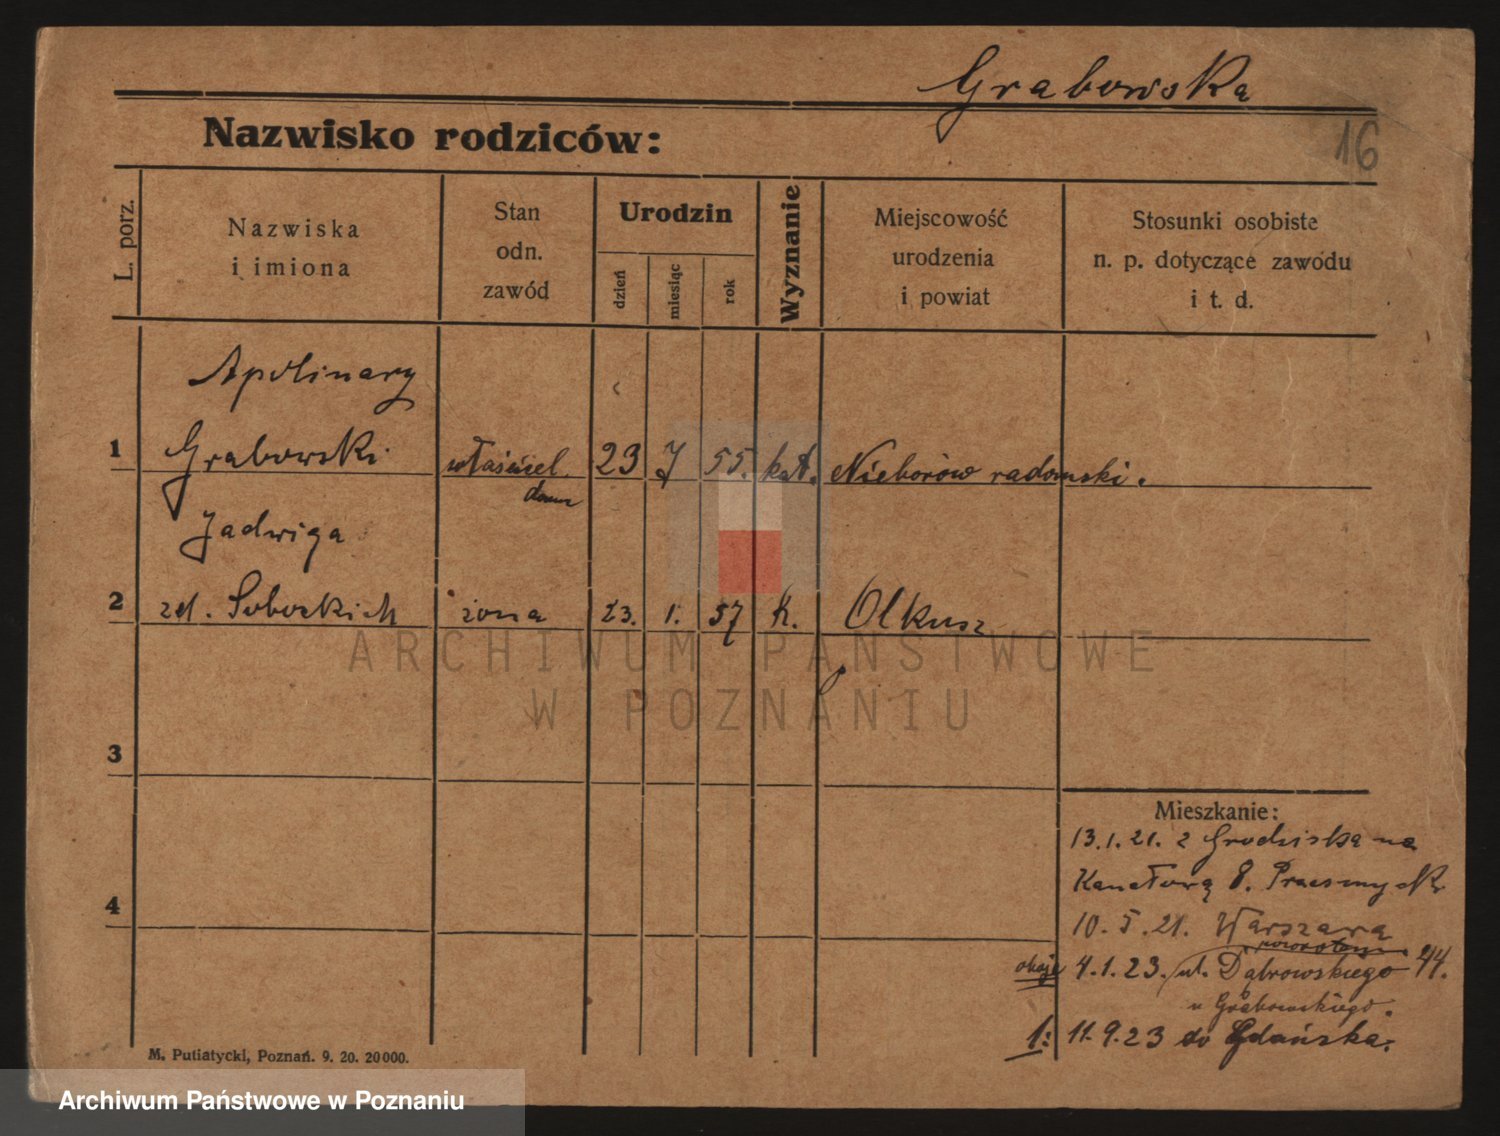 Grabowska
16
Nazwisko rodziców:
L. porz.
Nazwiska
i imiona
Stan
odn.
zawód
Urodzin
dzień
miesiąc
rok
Wyznanie
Miejscowość
urodzenia
i powiat
Stosunki osobiste
n. p. dotyczące zawodu
i t. d.
Apolinary
1 Grabowski właściciel 23 7 55. kat. Nieborów radomski.
domu
Jadwiga
2 zd. żona 23. 1. 57 k. Olkusz
ARCHIWUM PAŃSTWOWE
W POZNANIU
3
4
Mieszkanie:
13.1.21. z Grodziska na
Kanałową 8.
10.5.21. Warszawa
oboje 4.1.23. ul. Dąbrowskiego 44.
u Grabowskiego.
1: 11.9.23 do Gdańska.
M. Putiatycki, Poznań. 9. 20. 20000.
Archiwum Państwowe w Poznaniu